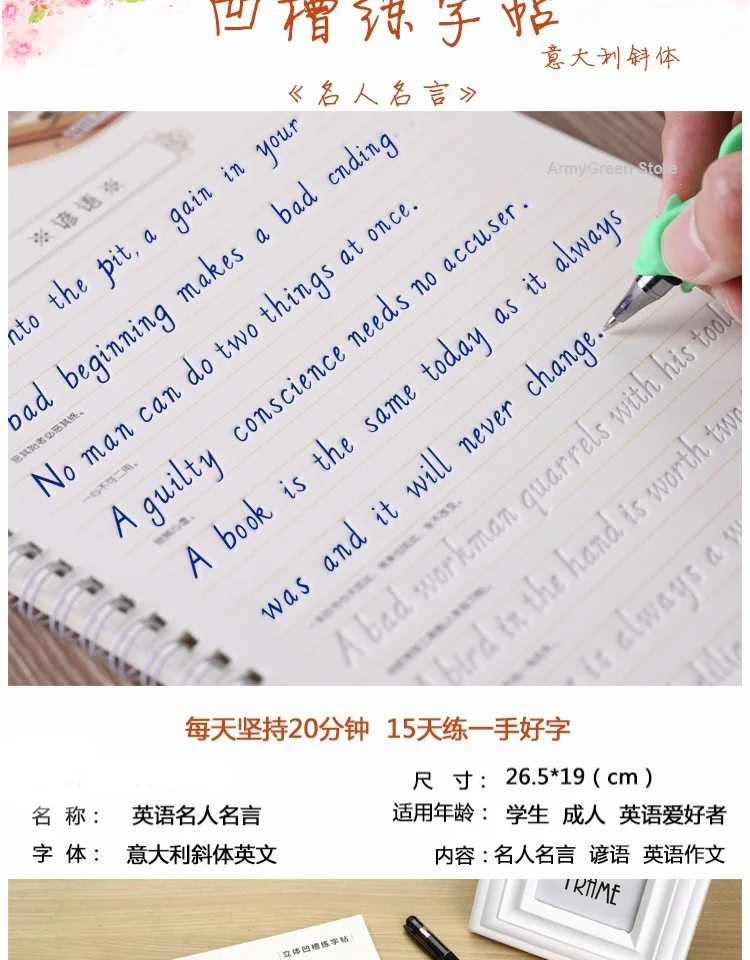 凹槽练字帖
意大利斜体
《名人名言》
ArmyGreen Store
※谚语※
into the pit, a gain in your
bad beginning makes a bad cnding
恶其始者必恶其终。
No man can do two things at once.
一心不可二用。
A guilty conscience needs no accuser.
A book is the same today as it always
was and it will never change.
A bad workman quarrels with his tool
bird in the hand is worth two
is always a w
每天坚持20分钟 15天练一手好字
尺 寸： 26.5*19（cm）
名 称： 英语名人名言
适用年龄： 学生 成人 英语爱好者
字 体： 意大利斜体英文
内容：名人名言 谚语 英语作文
FRAME
立体凹槽练字帖